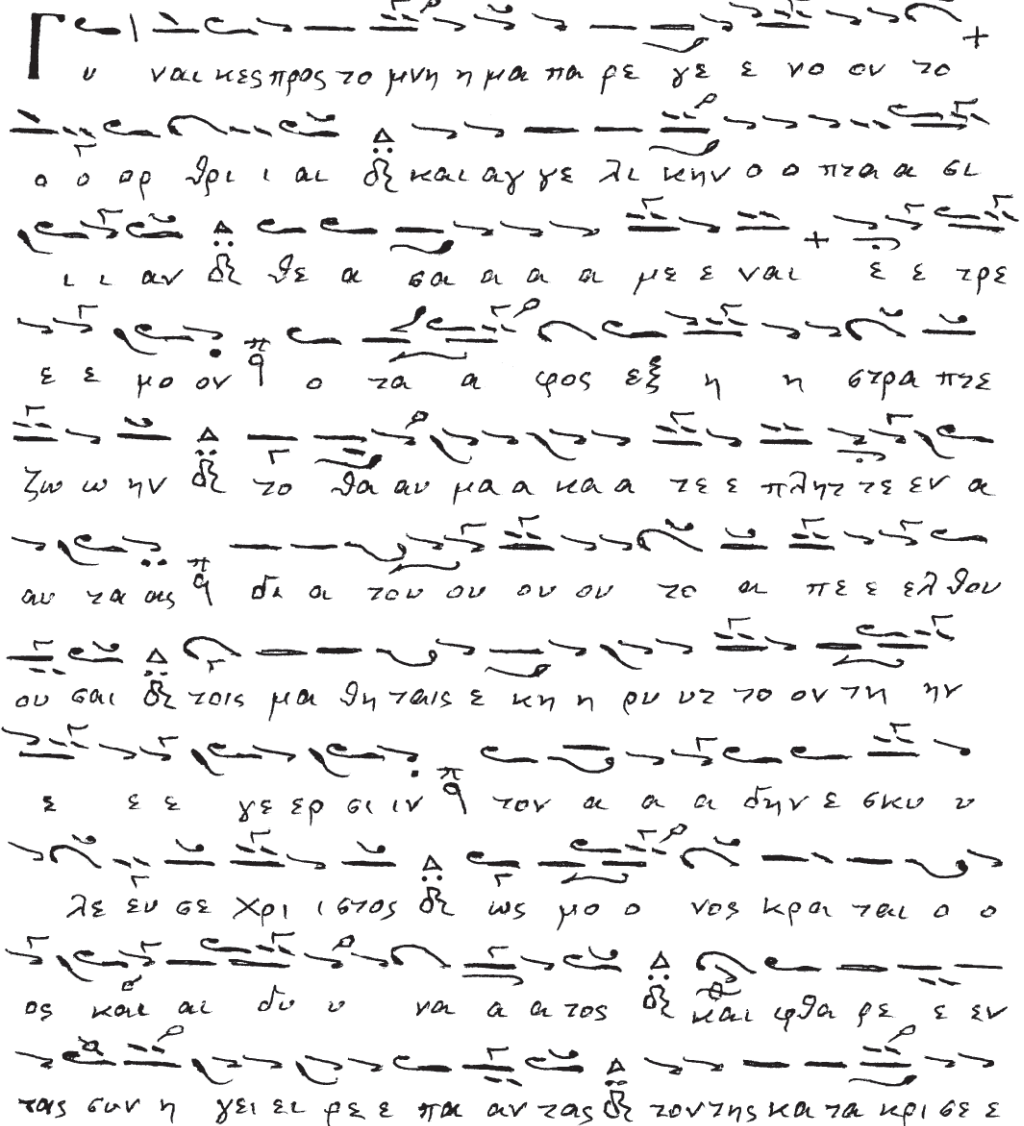 Γυ ναι κες προς το μνη η μα πα ρε γε ε νο ον το
ο ο ορ θρι ι αι και αγ γε λι κην ο ο πτα α σι
ι ι αν θε α σα α α α με ε ναι ε ε τρε
ε ε μο ον ο τα α φος εξ η η στρα πτε
ζω ω ην το θα αυ μα α κα α τε ε πλητ τε εν α
αυ τα ας δι α του ου ου ου το α πε ε ελ θου
ου σαι τοις μα θη ταις ε κη η ρυ υτ το ον τη ην
ε ε ε γε ερ σι ιν τον α α α δην ε σκυ υ
λε ευ σε Χρι ι στος ως μο ο νος κρα ται ο ο
ος και αι δυ υ να α α τος και φθα ρε ε εν
τας συν η γει ει ρε ε πα αν τας τον της κα τα κρι σε ε